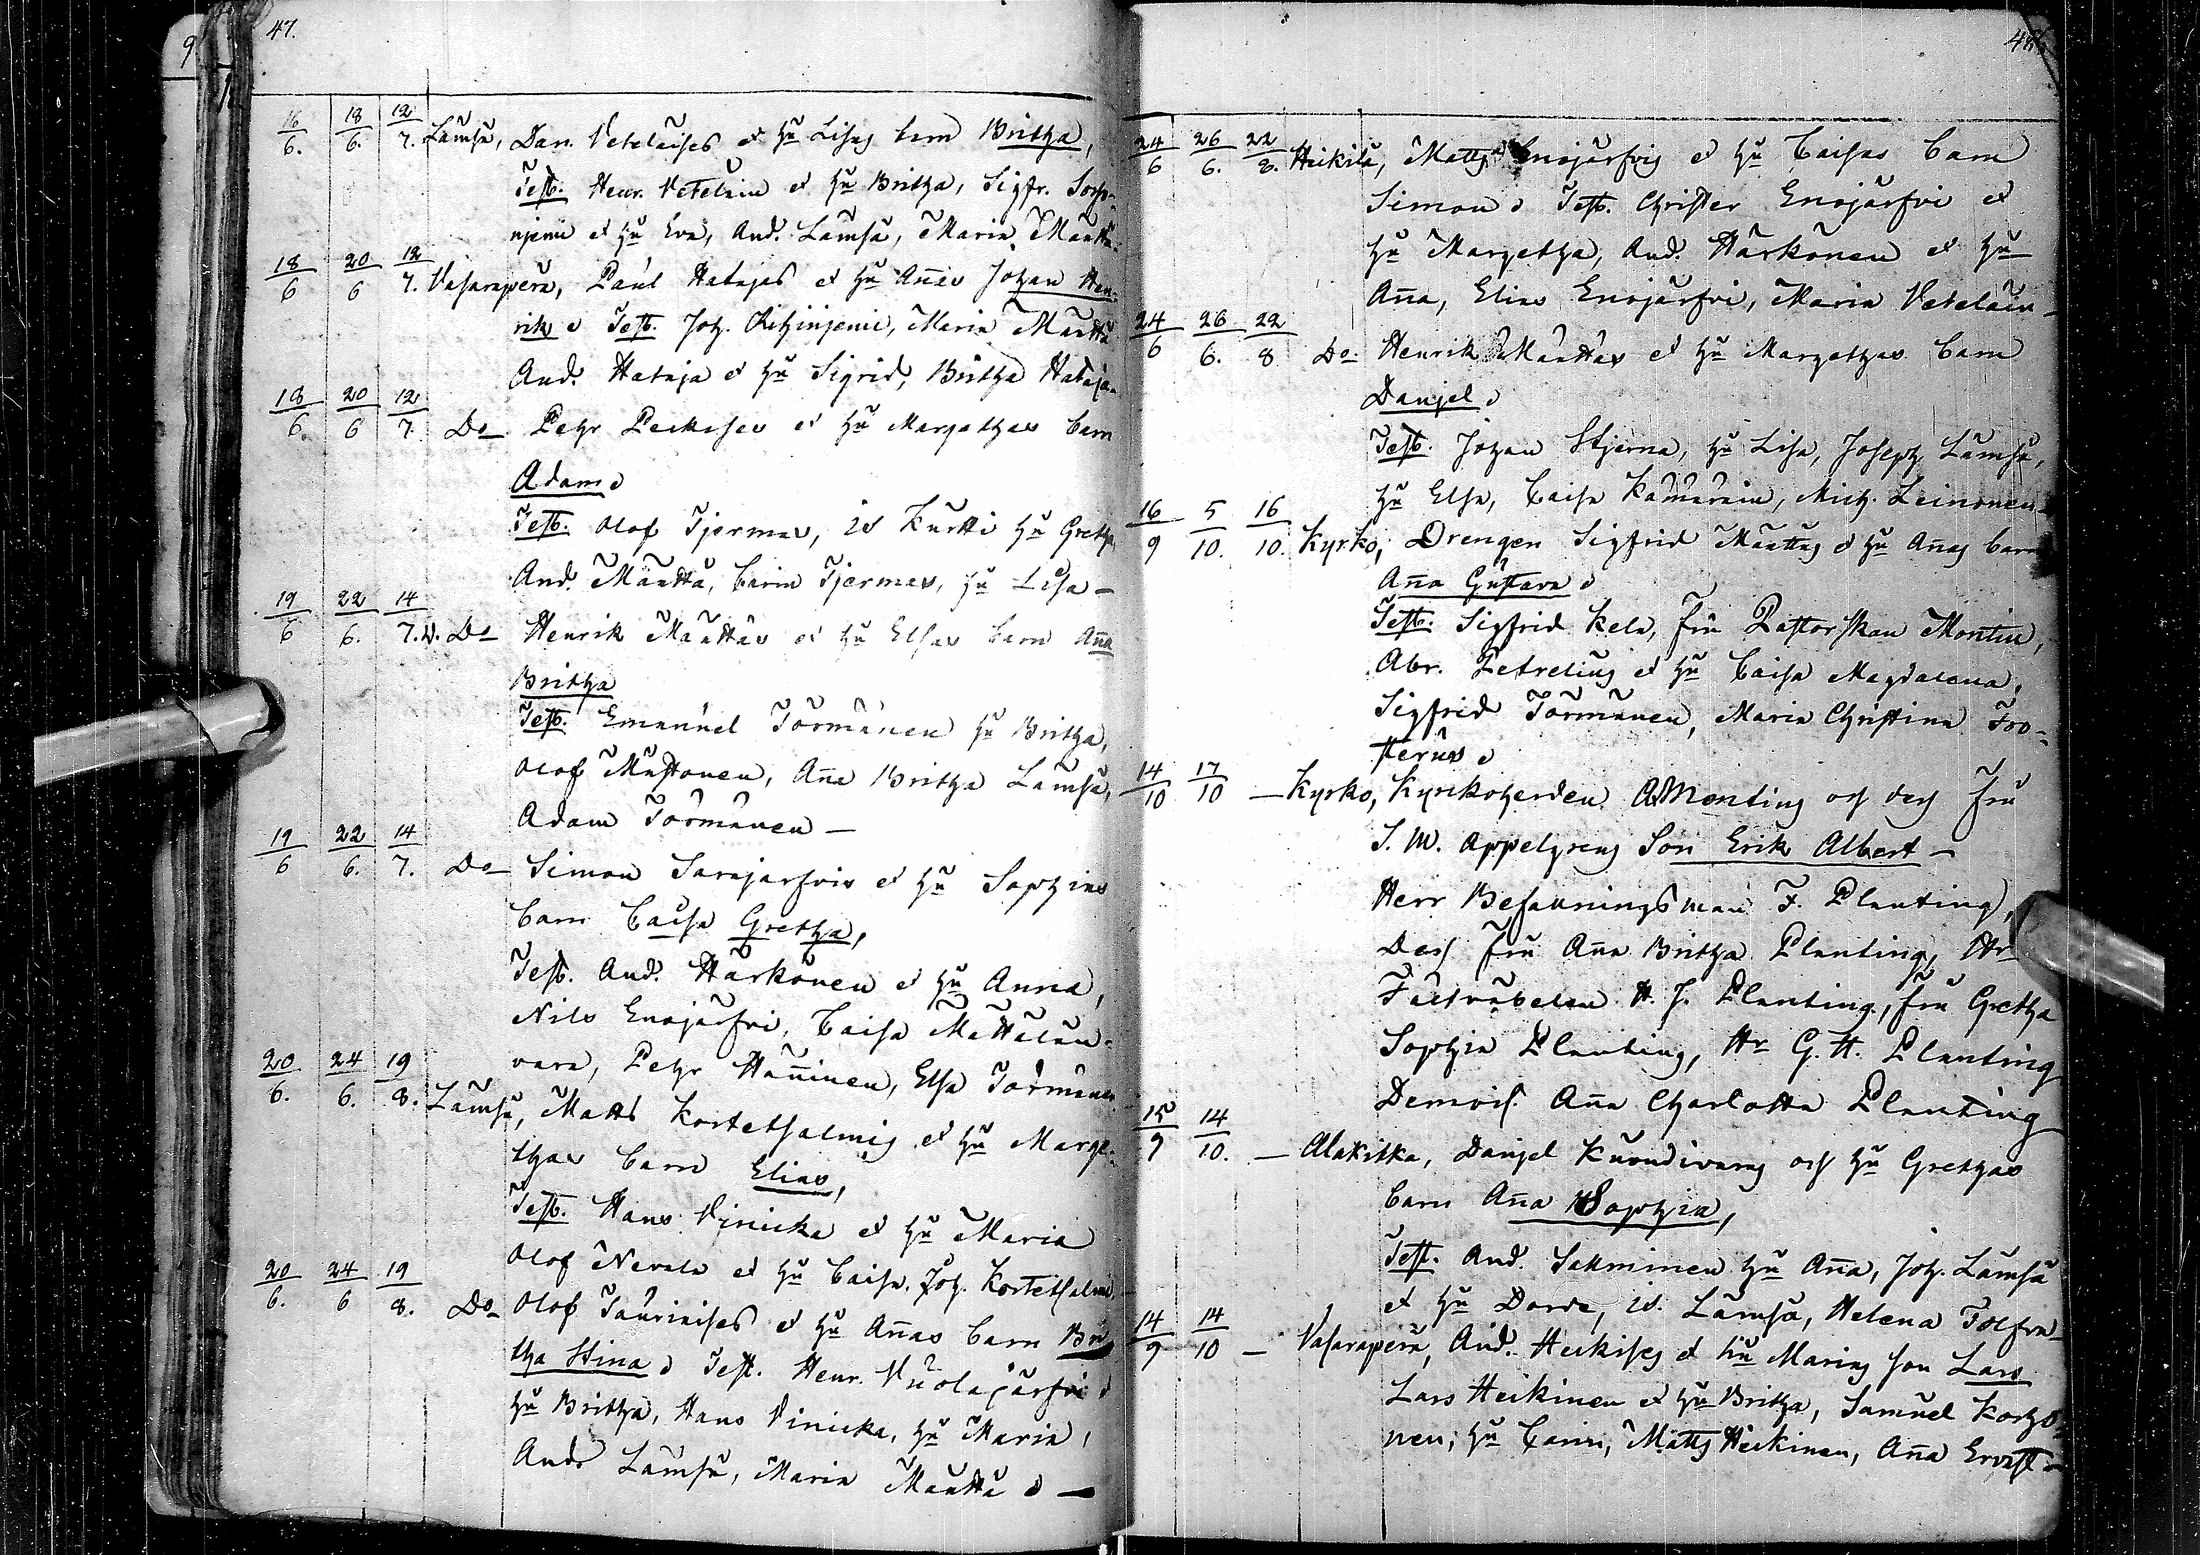 47.
16/6. 18/6. 12/7. Lämsä, Dan. Vetelaises et hu Lisas barn Britha,
Test. Henr. Vetelain et hu Britha, Sigfr. Sorp-
njemi et hu Eva, And. Lämsä, Maria Määttä.
18/6 20/6 12/7. Vasarapera, Paul Hatajas et hu Annas Johan Hen-
rik Test. Joh. Ritzinjemi, Maria Määttä
And. Hataja et hu Sigrid, Britha Hataja.
18/6. 20/6 12/7. Do Pehr Peckises et hu Margethas barn
Adam
Test. Olof Tjermas, is Kurtti hu Gretha,
And. Määttä, Carin Tjermas, hu Lisa –
19/6 22/6. 14/7. Do Henrik Määttäs et hu Elsas barn Anna
Britha
Test. Emanuel Törmänen hu Britha,
Olof Mustonen, Anna Britha Lämsä,
Adam Törmänen –
19/6 22/6. 14/7. Do Simon Sarajärfvis et hu Sophias
barn Caisa Gretha,
Test. And. Härkönen et hu Anna,
Nils Enojärfvi, Caisa Mattalan-
vara, Pehr Hänninen, Elsa Törmänen
20/6. 24/6. 19/8. Lämsä, Matts Kortetsalmis et hu Marge-
thas barn Elias,
Test. Hans Vinicka et hu Maria
Olof Nevala et hu Caisa. Joh. Kortetsalmi
20/6. 24/6 19/8. Do Olof Tauriaises et hu Annas barn Bri
tha Stina Test. Henr. Vuolajärfvi
hu Britha, Hans Vinicka, hu Maria,
And. Lämsä, Maria Määttä –
24/6 26/6. 22/8. Heikilä, Matts Enojärfvis et hu Caisas barn
Simon Test. Christer Enojärfvi et
hu Margetha, And. Härkönen et hu
Anna, Elias Enojärfvi, Maria Vetelain –
24/6 26/6. 22/8 Do Henrik Määttäs et hu Margethas barn
Danjel
Test. Johan Stjerna, hu Lisa, Joseph Lämsä,
hu Elsa, Caisa Kämäräin, Mich. Leinonen
16/9 5/10. 16/10. Kyrko, Drengen Sigfrid Määttas et hu Annas barn
Anna Gustava
Test. Sigfrid Kela, Fru Pastorskan Montin,
Abr. Petrelius et hu Caisa Magdalena.
Sigfrid Törmänen, Maria Christina Fro-
sterus
14/10 17/10 – Kyrko, Kyrkoherden A Montins och des Fru
S. M. Appelgrens Son Erik Albert –
Herr Befalningsman F. Planting,
Des Fru Anna Britha Planting, Hr
H. J. Planting, Fru Gretha
Sophia Planting, Hr G. H. Planting
Demois. Anna Charlotta Planting
15/9 14/10. – Alakitka, Danjel Kuondivaras och hu Grethas
barn Anna Sophia,
Test. And. Sakminen hu Anna, Joh. Lämsä
et hu Dorde, is. Lämsä, Helena Tolfva
14/9 14/10 – Vasarapera, And. Heikises et hu Marias son Lars
Lars Heikinen et hu Britha, Samuel Korho-
nen, hu Carin, Matts Heikinen, Anna Ervast –